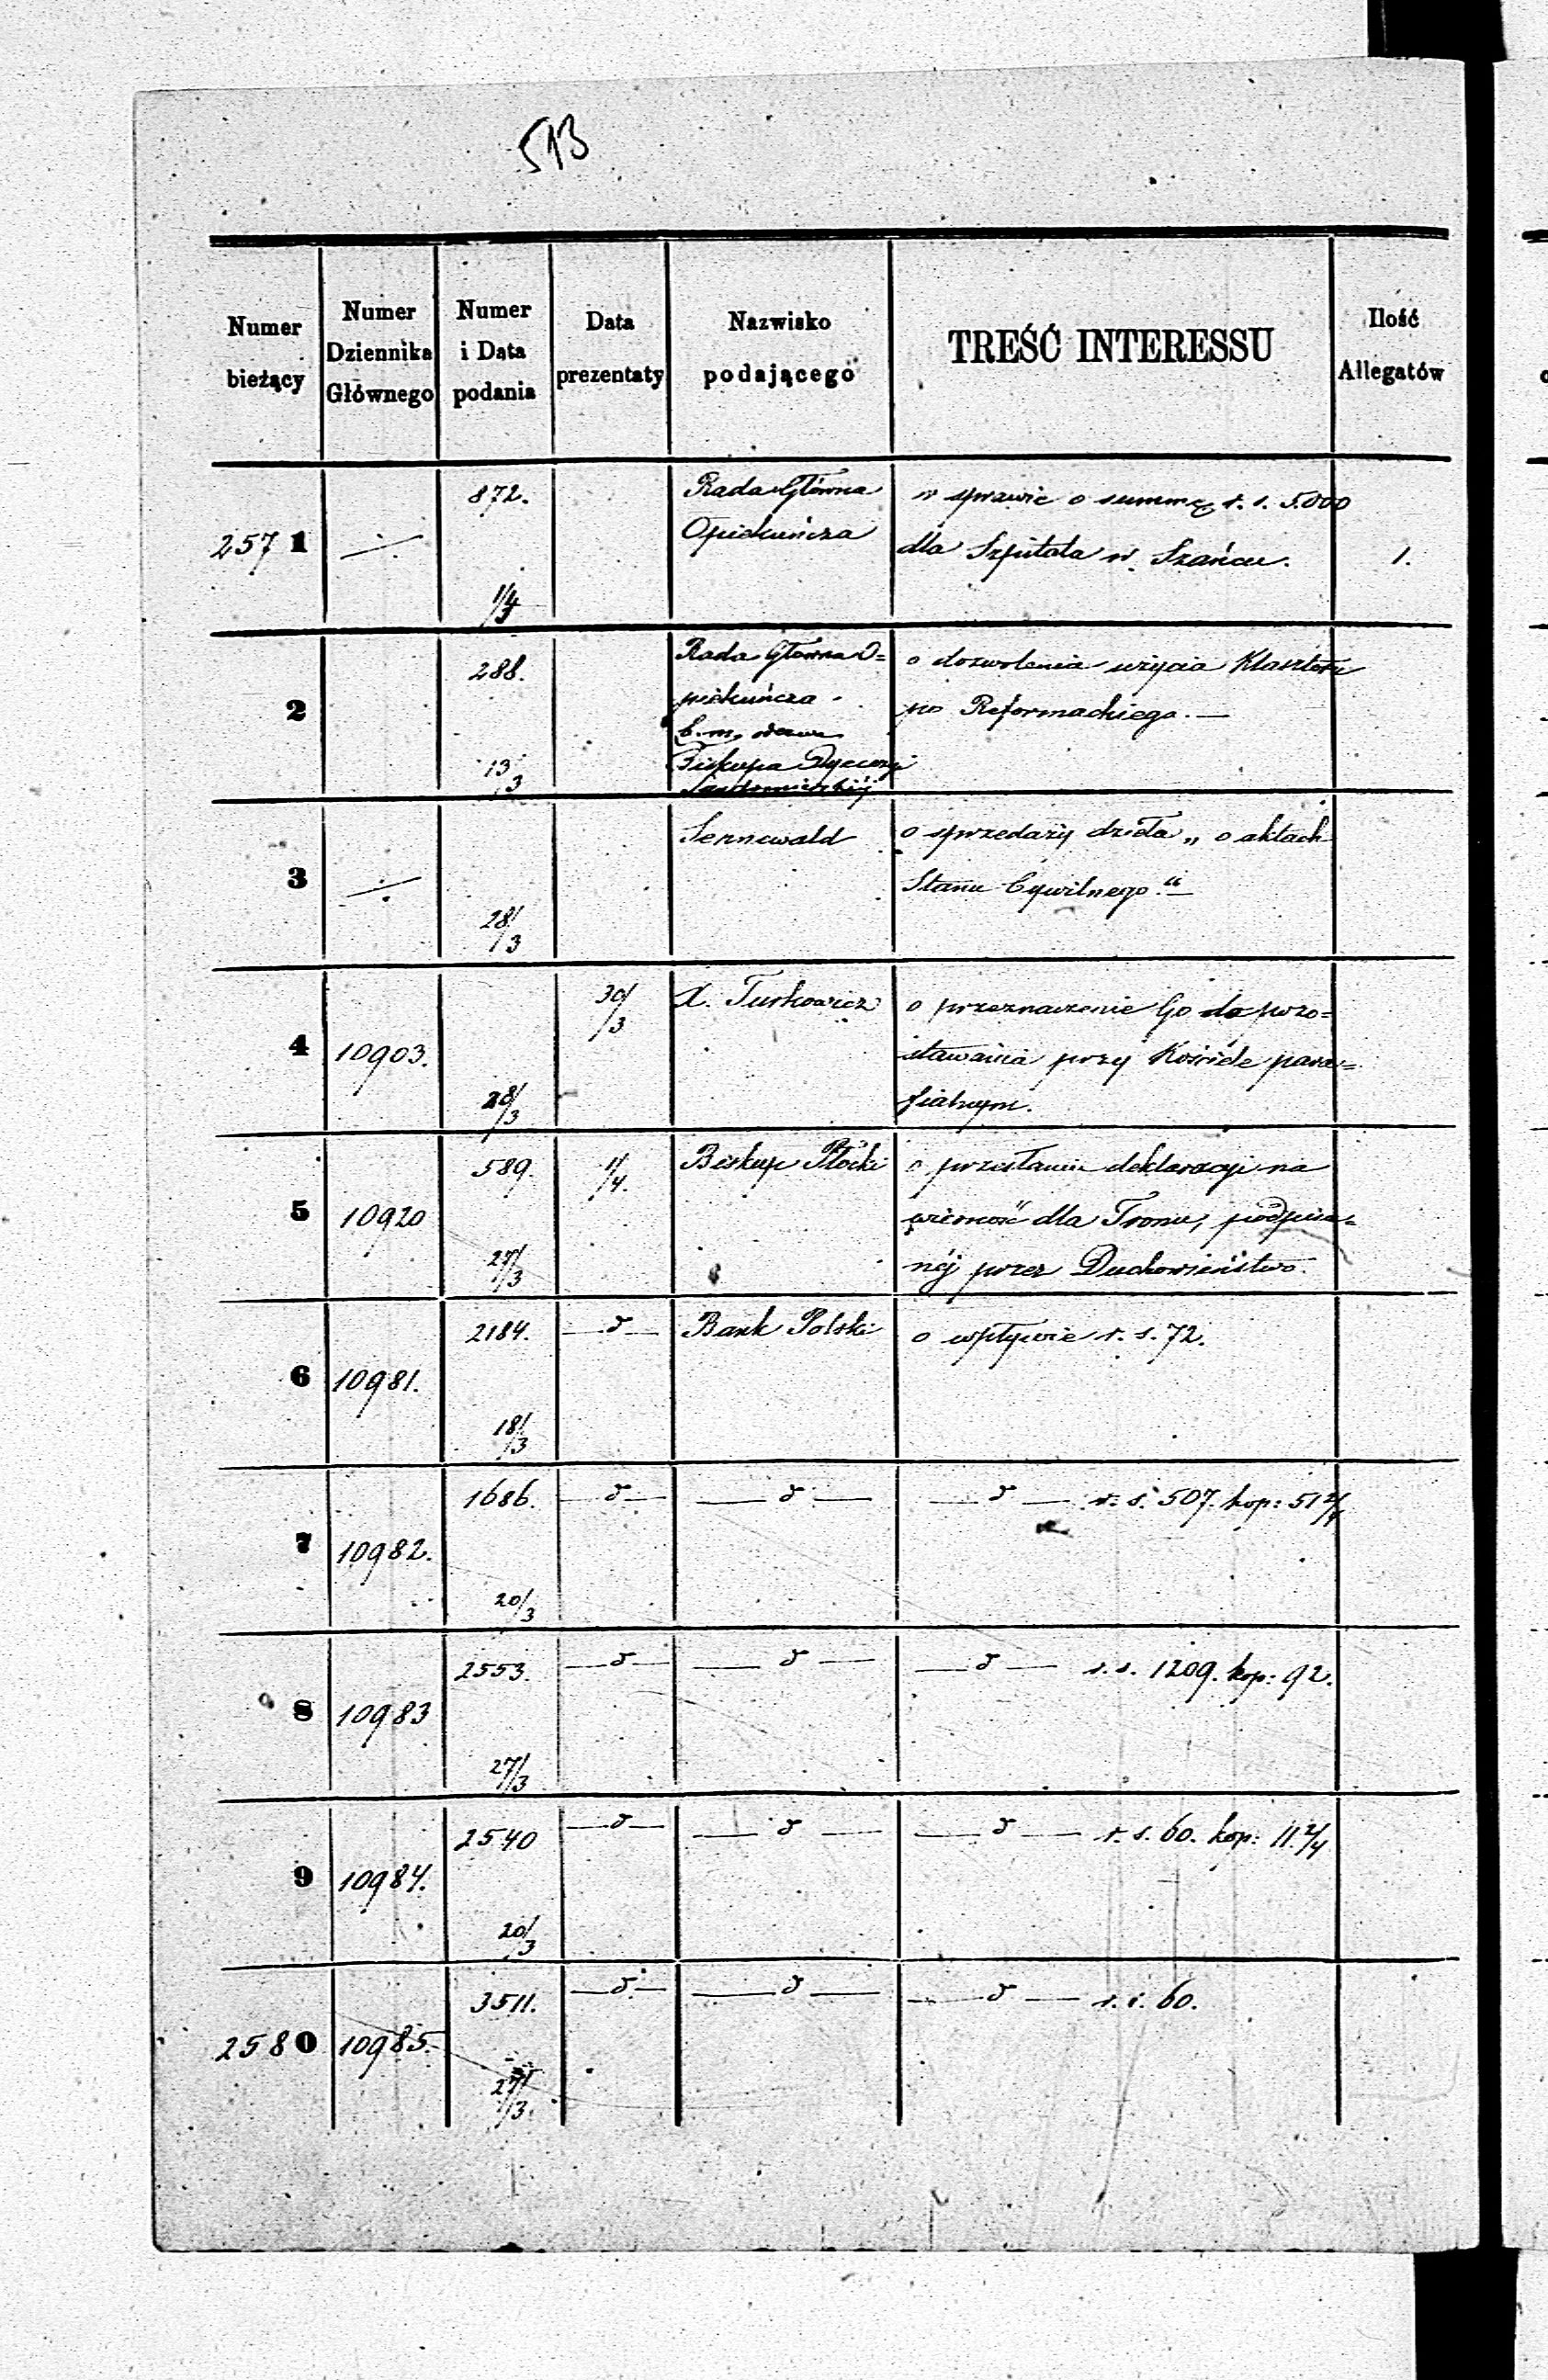 513
Numer bieżący
Numer Dziennika Głównego
Numer i Data podania
Data prezentaty
Nazwisko podającego
TREŚĆ INTERESSU
Ilość Allegatów
2571 ÷ 872. 1/4 Rada Główna
Opiekuńcza
w sprawie o summę r. s. 5.000
dla Szpitala w Szańcu.
1.
2 288. 13/3 Rada Głowna O=
piekuńcza
Biskupa Dyecezyi
Sandomierskiéj
o dozwolenie użycia Klasztoru
po Reformackiego.—
3 ÷ 28/3 Sennewald
o sprzedaży dzieła „o aktach
Stanu Cywilnego."—
4 10903. 28/3 30/3 X. Turkowicz
o przeznaczenie Go do pozo=
stawania przy Kościele para=
fialnym.
5 10920 589. 27/3 1/4. Biskup Płocki
o przesłaniu deklaracyi na
wierność dla Tronu, podpisa=
néj przez Duchowieństwo.
6 10981. 2184. 18/3 —d— Bank Polski
o wpływie r. s. 72.
7 10982. 1686. 20/3 —d— —d— —d— r. s. 507. kop: 51 2/4
8 10983 2553. 27/3 —d— —d— —d— r. s. 1209. kop: 92.
9 10984. 2540 20/3 —d— —d— —d— r. s. 60. kop: 11. 2/4
2580 10985. 3511. 27/3. —d— —d— —d— r. s. 60.